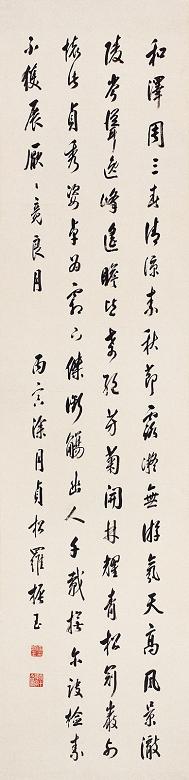 和澤周三春清涼素秋節露凝無游氛天高風景澈
陵岑聳逸峰遙瞻皆奇絕芳菊開林耀青松冠巖列
懷此貞秀姿卓為霜下傑銜觴幽人千載撫尔訣檢素
不獲展厭厭竟良月
丙寅涂月貞松羅振玉